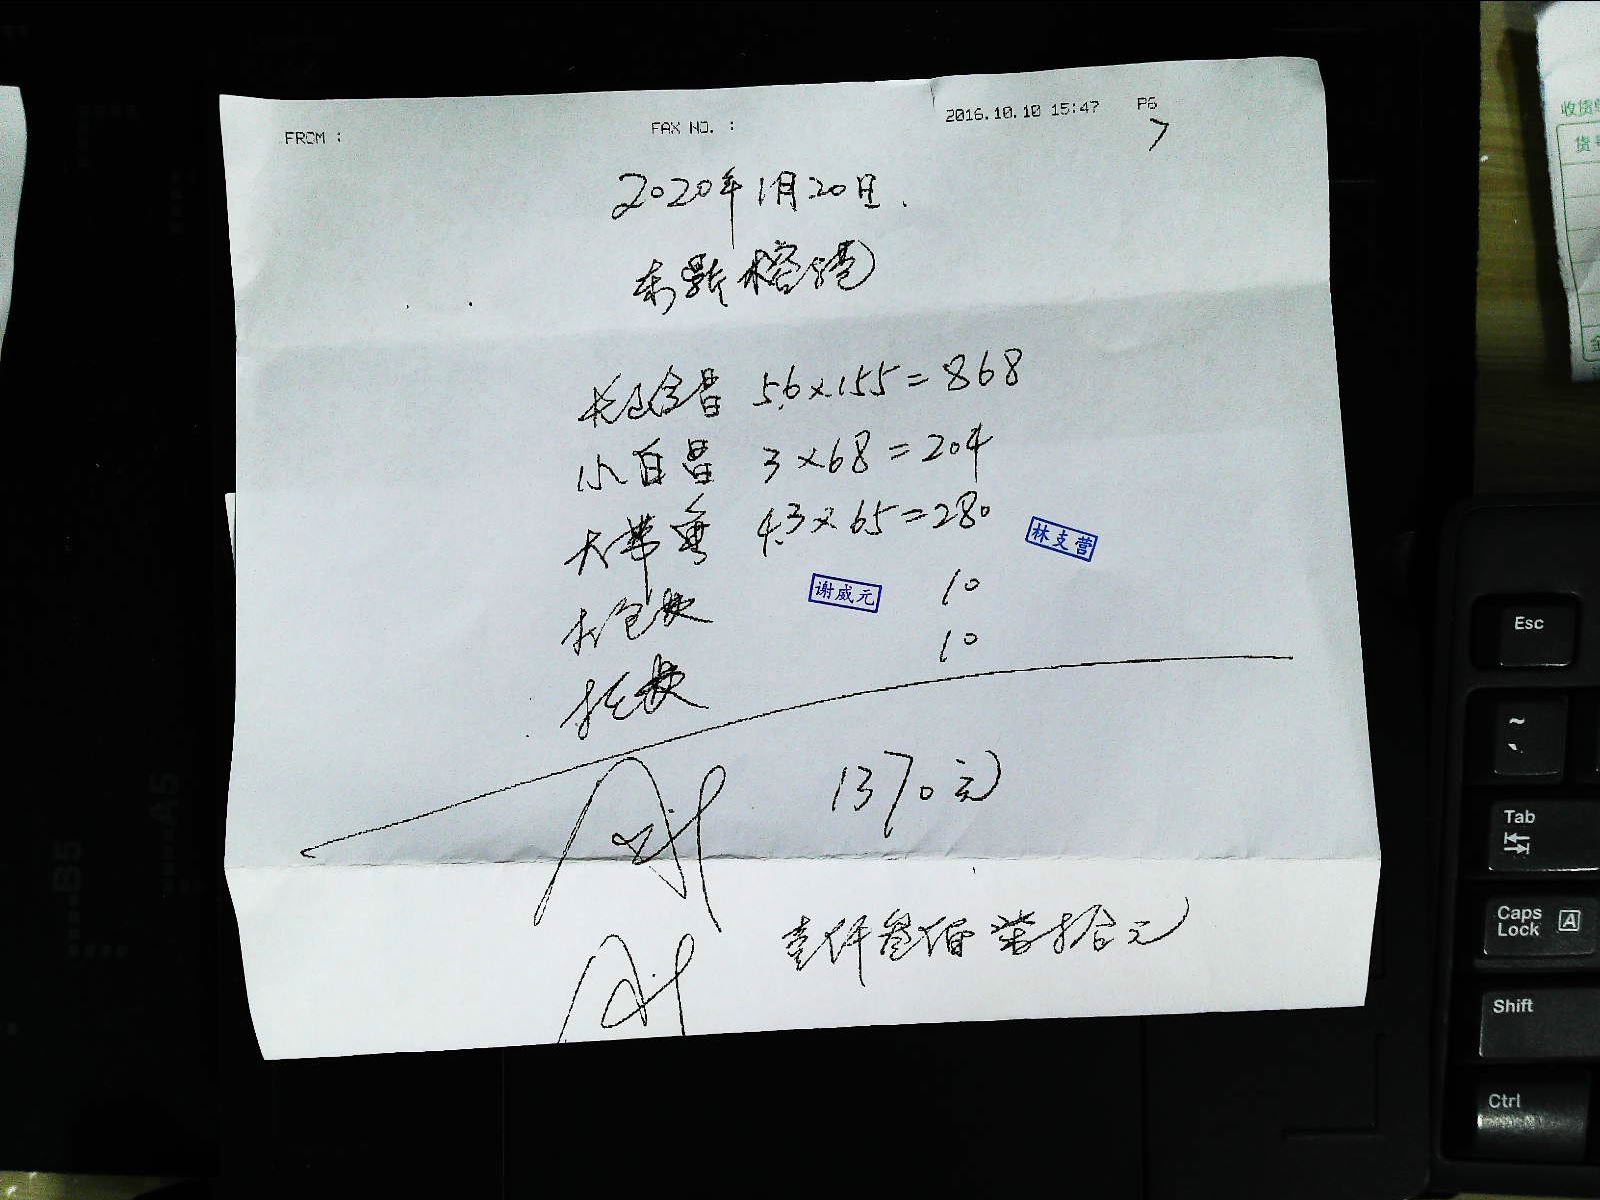 FROM :
FAX NO. :
2016.10.10 15:47 P6
7
2020年1月20日.
5.6×155=868
小白昌 3×68=204
大带鱼 4.3×65=280
林支营
谢威元
10
10
1370元
壹仟叁佰柒拾元
收货单
货号
金
B5
A5
Esc
~
Tab
Caps Lock A
Shift
Ctrl